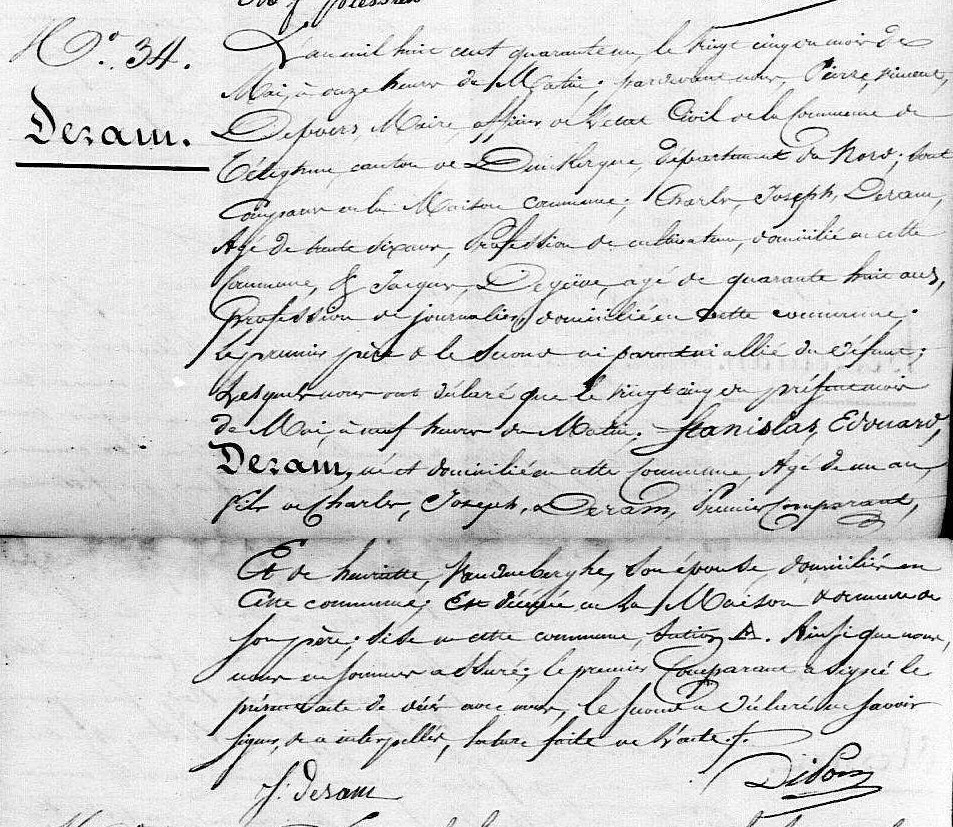 N.° 34.
Deram.
L'an mil huit cent quarante un, le vingt cinq du mois de
Mai, à onze heures du Matin; pardevant nous, Pierre,
Maire, officier de l'état Civil de la Commune de
Téteghem, canton de Dunkerque, département du Nord; sont
Comparus en la Maison commune; Charles, Joseph, Deram,
Agé de trente six ans, Profession de cultivateur, domicilié en cette
Commune, & Jacques, agé de quarante huit ans,
Profession de journalier, domicilié en cette commune;
le premier père & le Second ni parent ni allié du défunt;
Lesquels nous ont déclaré que le vingt cinq du présent mois
de Mai, à neuf heures du Matin; Stanislas, Edouard,
Deram, né et domicilié en cette Commune, Agé de un an,
fils de Charles, Joseph, Deram, Premier Comparant,
Et de henriette, Vandenberghe, son épouse, domiciliés en
Cette commune; Est décédé en la Maison & demeure de
son père; sise en cette commune, Section A. Ainsi que nous,
nous en sommes assuré; le premier Comparant a signé le
présent acte de décès avec nous, le second a déclaré ne savoir
signer, de ce interpellés, lecture faite de l'acte.
Deram